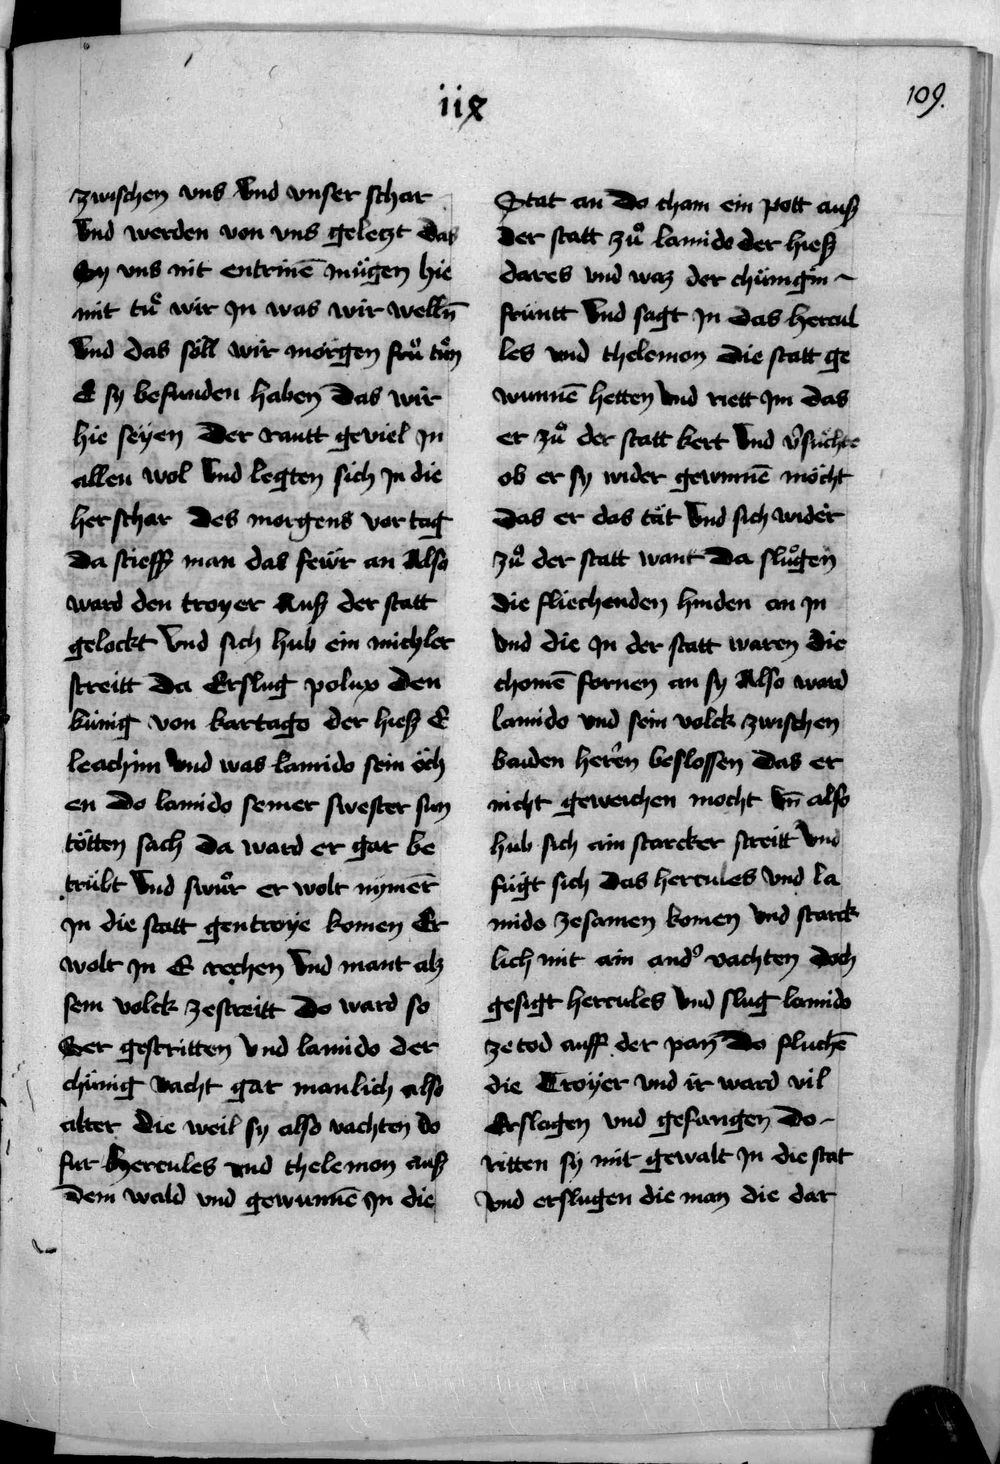 iix
109.
zwischen vns Vnd vnser schar
Vnd werden von vns geletzt das
Sy vns nit entrinē mügen hie
mit tuͦ wir In was wir welln̄
Vnd das söll wir morgen fruͦ tuͦn
E sy befunden haben Das wir
hie seyen Der rautt geviel In
allen wol Vnd legten sich In die
her schar Des morgens vor tag
Da stieff man das fewr an Also
ward den troyer Auß der statt
gelockt Vnd sich hub ein michler
streitt Da Erslug polux den
künig von kartago der hieß E
leachim Vnd was lamido sein öch
en Do lamido seiner swester sun
tötten sach Da ward er gar be
trübt Vnd swuͦr er wolt nymer
In die statt gentroye komen Er
wolt In E rechen Vnd mant alz
sein volck zestreitt Do ward so
Ser gestritten Vnd lamido der
chünig vacht gar manlich also
alter Die weil sy also vachten do
fur Hercules vnd thelemon auß
Dem wald vnd gewunnē In die
Stat an Do cham ein pott auß
Der statt zuͦ lamido der hieß
dares vnd waz der chünigin
früntt Vnd sagt In das hercul
les vnd thelemon Die statt ge
wunnē hetten Vnd riett Im das
er zuͦ der statt kert Vnd v̉suͦchte
ob er sy wider gewunnē möcht
Das er das tät Vnd sich wider
zuͦ der statt want Da sluͦgen
die fliechenden hinden an In
Vnd die In der statt waren Die
chomē fornen an sy Also ward
lamido vnd sein volck zwischen
baiden herē̉n beslossen Das er
nicht geweichen mocht Vn̄ also
hub sich ain starcker streitt Vnd
fügt sich Das hercules Vnd la
mido zesamen komen Vnd starck
lich mit ain and̉ vachten Doch
gesigt hercules Vnd slug lamido
ze tod auff der pan̄ Do fluchē
die Troÿer vnd ir ward vil
Erslagen vnd gefangen Do
ritten sy mit gewalt In die stat
Vnd erslugen die man die dar